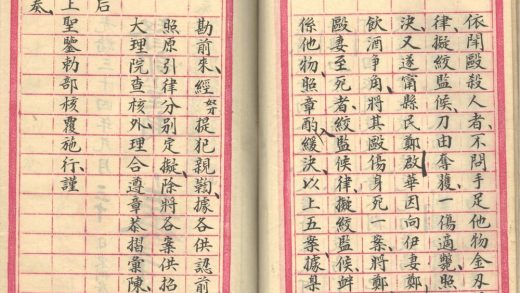 依鬥毆殺人者、不問手足他物金刃
律、擬絞監候、刀由奪獲、一傷適斃、照
決、又遂甯縣民鄭啟華因向伊妻鄭
飲酒爭角、將其毆傷身死一案、將鄭
毆妻至死者、絞監候律、擬絞監候、衅
係他物、照章酌、緩決、以上五案、據臬
勘前來、經奴才提犯親鞫、據各供認前
照原引律分別定擬、除將各案供招
大理院查核外、理合遵章恭摺彙陳、
后
上聖鑒勅部核覆施行、謹
奏、